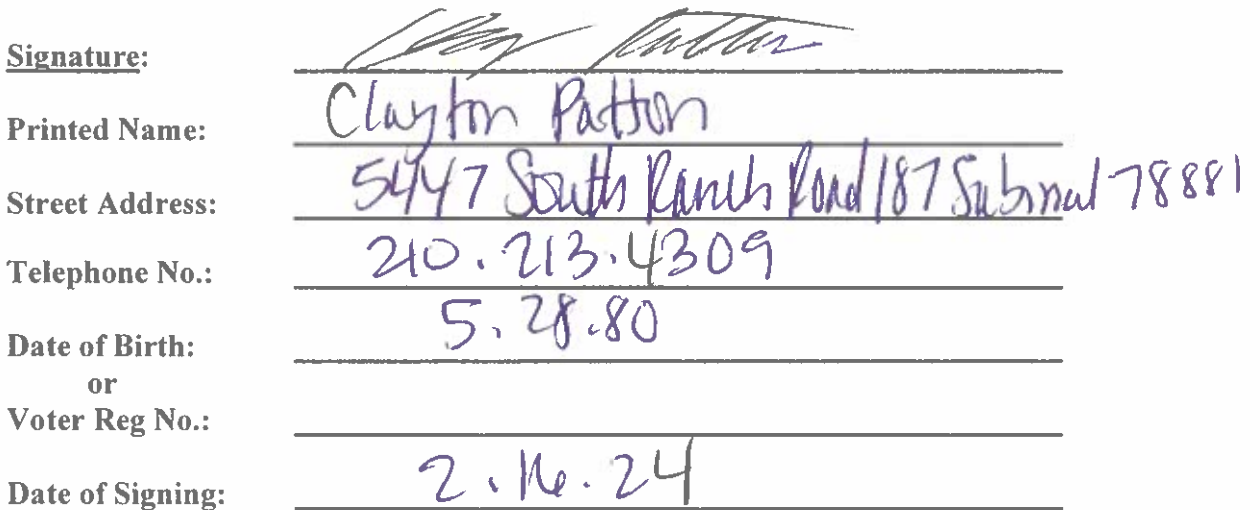 Signature:
Printed Name: Clayton Patton
Street Address: 5447 South Ranch Road 187 Sabinal 78881
Telephone No.: 210.213.4309
Date of Birth: 5.28.80
or
Voter Reg No.:
Date of Signing: 2.16.24